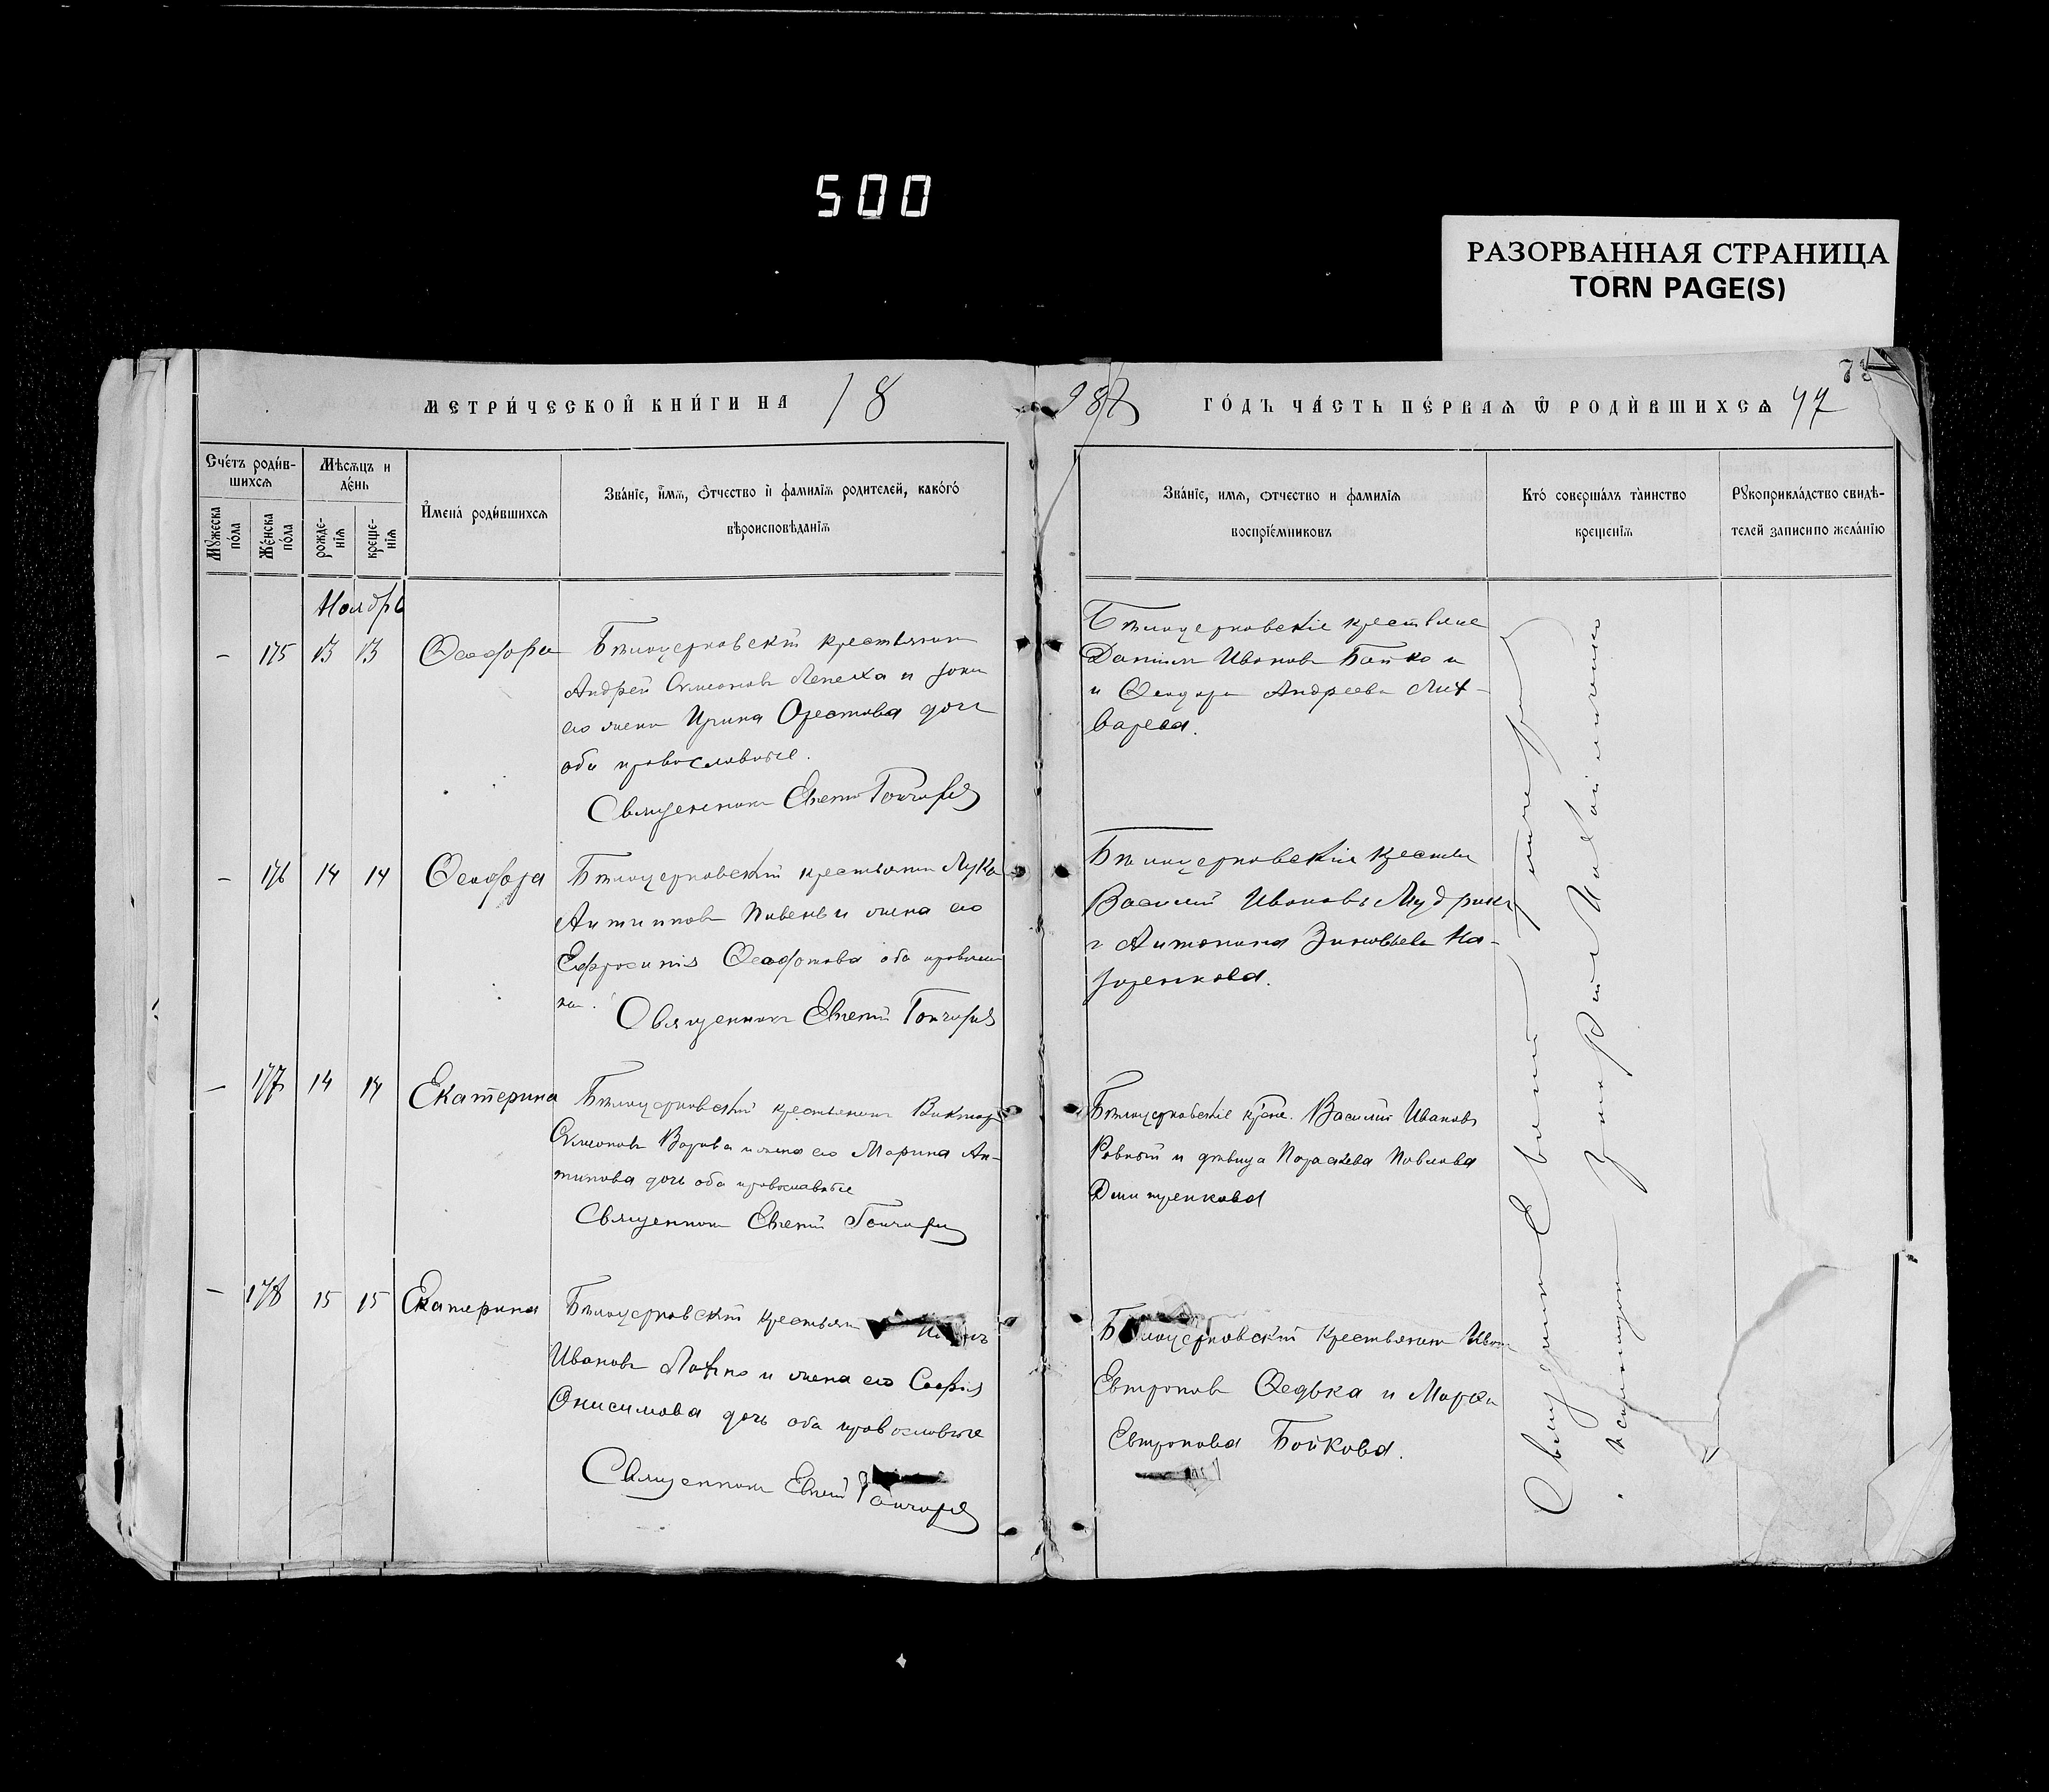 500
РАЗОРВАННАЯ СТРАНИЦА
TORN PAGE(S)
МЕТРИ́ЧЕСКОЙ КНИ́ГИ НА 18
ГО́ДЪ ЧА́СТЬ ПЕ́РВАѦ Ѿ РОДИ́ВШИХСѦ 47
Сче́тъ роди́в-
шихсѧ
Мѣсѧцъ и
де́нь
Мꙋжеска
по́ла
Же́нска
по́ла
рожде-
нїѧ
креще-
нїѧ
И҆мена́ роди́вшихсѧ
Зва́нїе, и҆́мѧ, о҆́тчество и҆ фамилїѧ родителей, како́гѡ
вѣроисповѣданїѧ
Зва́нїе, имѧ, отчество и фамилїѧ
воспрїе́мниковъ
Кто́ соверша́лъ та́инство
креще́нїѧ
Рꙋкоприкла́дство свидѣ-
телей записи по жела́нїю
Ноябрь
– 175 13 13 Ѳеофора
Бѣлоцерковскій крестьянинъ
Андрей Симеоновъ Лепеха и зокон
его жена Ирина Орестова дочь
оба православные.
Священникъ Евгеній Гончаровъ
Бѣлоцерковскіе крестьяне
Даниилъ Ивановъ Бойко и
и Ѳеодора Андреева Лит-
варева.
– 176 14 14
Бѣлоцерковскій крестьянинъ Лука
Антиповъ Пивень и жена его
Ефросинія оба православн
Священникъ Евгеній Гончаровъ
Бѣлоцерковскіе крестьяне
Василій Ивановъ Мудрикъ
и Антонина Зиновьева На-
заренкова.
– 177 14 14 Екатерина
Бѣлоцерковскій крестьянинъ Викторъ
Симеоновъ и жена его Марина Ан-
типова дочь оба православные
Священникъ Евгеній Гончаровъ
Бѣлоцерковскіе кр-не. Василій Ивановъ
Ровный и дѣвица Параскева Павлова
Дмитренкова
– 178 15 15 Екатерина
Бѣлоцерковскій крестьянинъ
Ивановъ и жена его Софія
Онисимова дочь оба православные
Священникъ Евгеній Гончаровъ
Бѣлоцерковскій крестьянинъ Иванъ
Евтроповъ Ѳедька и Марѳа
Евтропова Бойкова.
Священникъ Евгеній